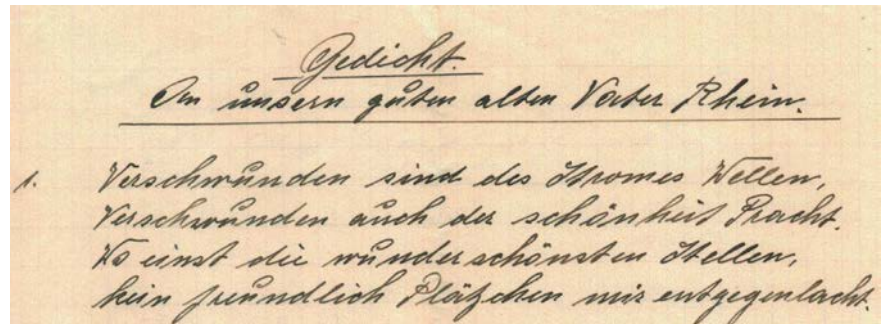 Gedicht.
An unsern guten alten Vater Rhein.
1. Verschwunden sind des Stromes Wellen,
Verschwunden auch der schönheit Pracht.
Wo einst die wunderschönsten Stellen,
kein freundlich Plätzchen mir entgegenlacht.